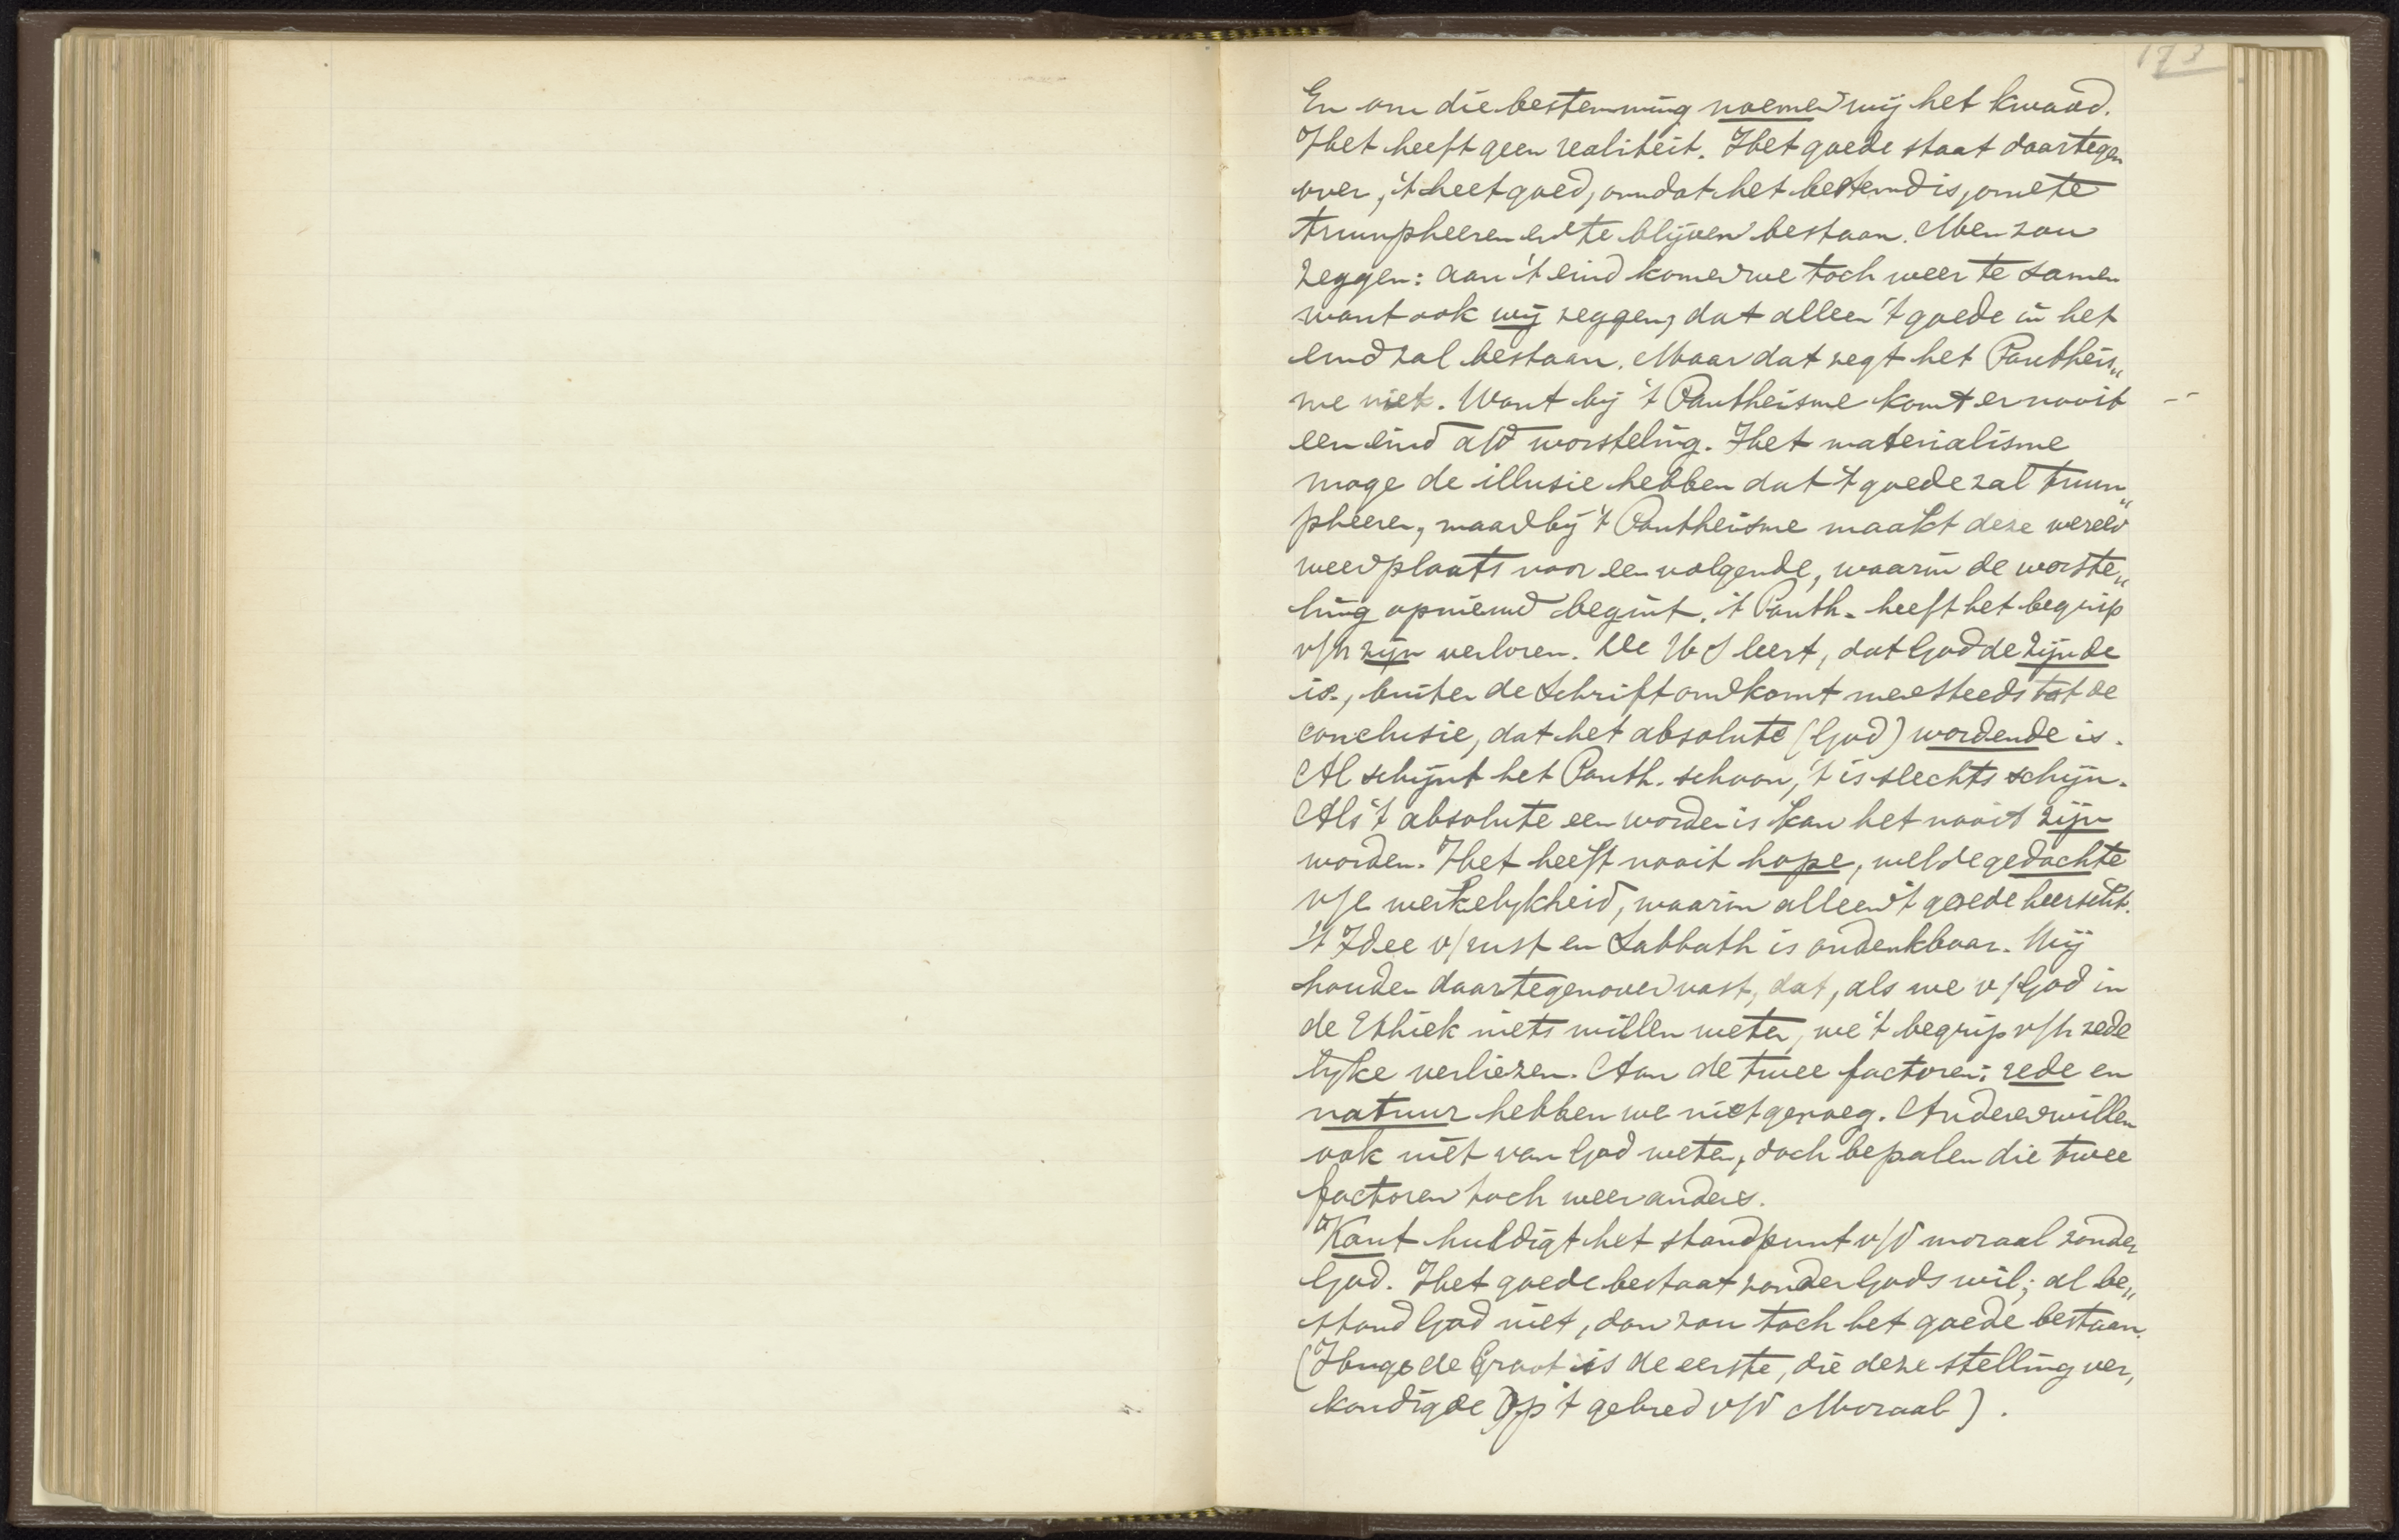 173
En om die bestemming noemen wij het kwaad.
Het heeft geen realiteit. Het goede staat daartegen
over, 't heet goed, omdat het bestemd is, om te
triumpheeren en te blijven bestaan. Men zou
zeggen: aan 't eind komen we toch weer te samen
want ook wij zeggen, dat alleen 't goede in het
eind zal bestaan. Maar dat zegt het Pantheis„
me niet. Want bij 't Pantheisme komt er nooit
een eind a/d worsteling. Het materialisme
moge de illusie hebben dat 't goede zal trium„
pheeren, maar bij 't Pantheisme maakt deze wereld
weer plaats voor een volgende, waarin de worste„
ling opnieuw begint. 't Panth. heeft het begrip
v/h zijn verloren. De H S leert, dat God de zijnde
is, buiten de Schrift om komt men steeds tot de
conclusie, dat het absolute (God) wordende is.
Al schijnt het Panth. schoon, 't is slechts schijn.
Als 't absolute een worden is kan het nooit zijn
worden. Het heeft nooit hope, wel de gedachte
v/e werkelykheid, waarin alleen 't goede heerscht.
't Idee v/rust en Sabbath is ondenkbaar. Wij
houden daartegenover vast, dat, als we v/God in
de Ethiek niets willen weten, we 't begrip v/h zede
lyke verliezen. Aan de twee factoren: rede en
natuur hebben we niet genoeg. Anderen willen
ook niet van God weten, doch bepalen die twee
factoren toch weer anders.
Kant huldigt het standpunt v/d moraal zonder
God. Het goede bestaat zonder Gods wil; al be„
stond God niet, dan zou toch het goede bestaan.
(Hugo de Groot is de eerste, die deze stelling ver„
kondigde op 't gebied v/d Moraal).